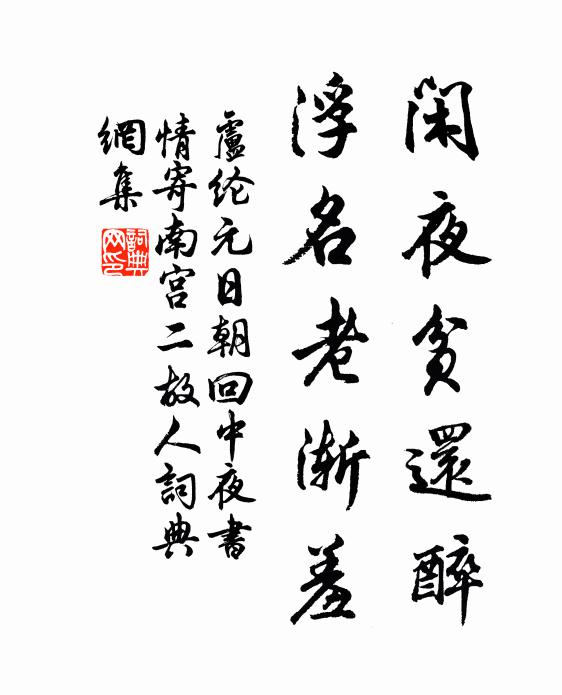 閑夜貧還醉
浮名老漸羞
盧纶元日朝回中夜書
情寄南宮二故人詞典
網集
詞典
网印